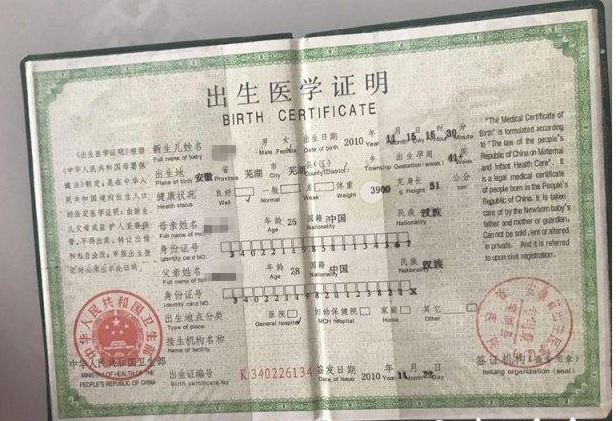 出生医学证明
BIRTH CERTIFICATE
《出生医学证明》根据
《中华人民共和国母婴保
健法》制定,是在中华人
民共和国境内出生人口
的法定医学证明。由新生
儿父母或监护人妥善保
管,不得出卖、转让出借
和私自涂改,申报出生登
记时必须出示此证。
新生儿姓名 男 女 出生日期 2010 年 11 月 15 日 16 时 30 分
Full name of baby Male Female Date of birth Year Month Day Hour Minute
出生地 安徽 省 芜湖 市 芜湖 县(区) 乡 出生孕周 41 周
Place of birth Province City County(District) Township Gestation Week
健康状况 良好 一般 差 体重 3900 克 身长 51 公分
Health status Well Normal Weak Weight g Height cm
母亲姓名 年龄 25 国籍 中国 民族 汉族
Full name of mother Age Nationality Nationality
身份证号
Identity card NO.
父亲姓名 年龄 28 国籍 中国 民族 汉族
Full name of Age Nationality Nationality
身份证号
Identity card NO.
出生地点分类 医院 妇幼保健院 家庭 其它
Type of place General hospital MCH hospital Home Other
接生机构名称
Name of facility
出生证编号 K 340226134 签发日期 2010 年 11 月 22 日
Birth certificate No Date of issue Year Month Day
"The Medical Certificate of
Birth" is formulated according
to "The law of the people's
Republic of China on Maternal
and Infant Health Care". It
is a legal medical certificate
of people born in the People's
Republic of China. It is taken
care of by the Newborn baby's
father and mother or guardian.
Can not be sold, lent or altered
in private. And it is referred
to upon civil registration.
中华人民共和国卫生部
中华人民共和国卫生部
MINISTRY OF HEALTH OF THE
PEOPLE'S REPUBLIC OF CHINA
签证机构(盖专用章)
Issuing organization (seal)